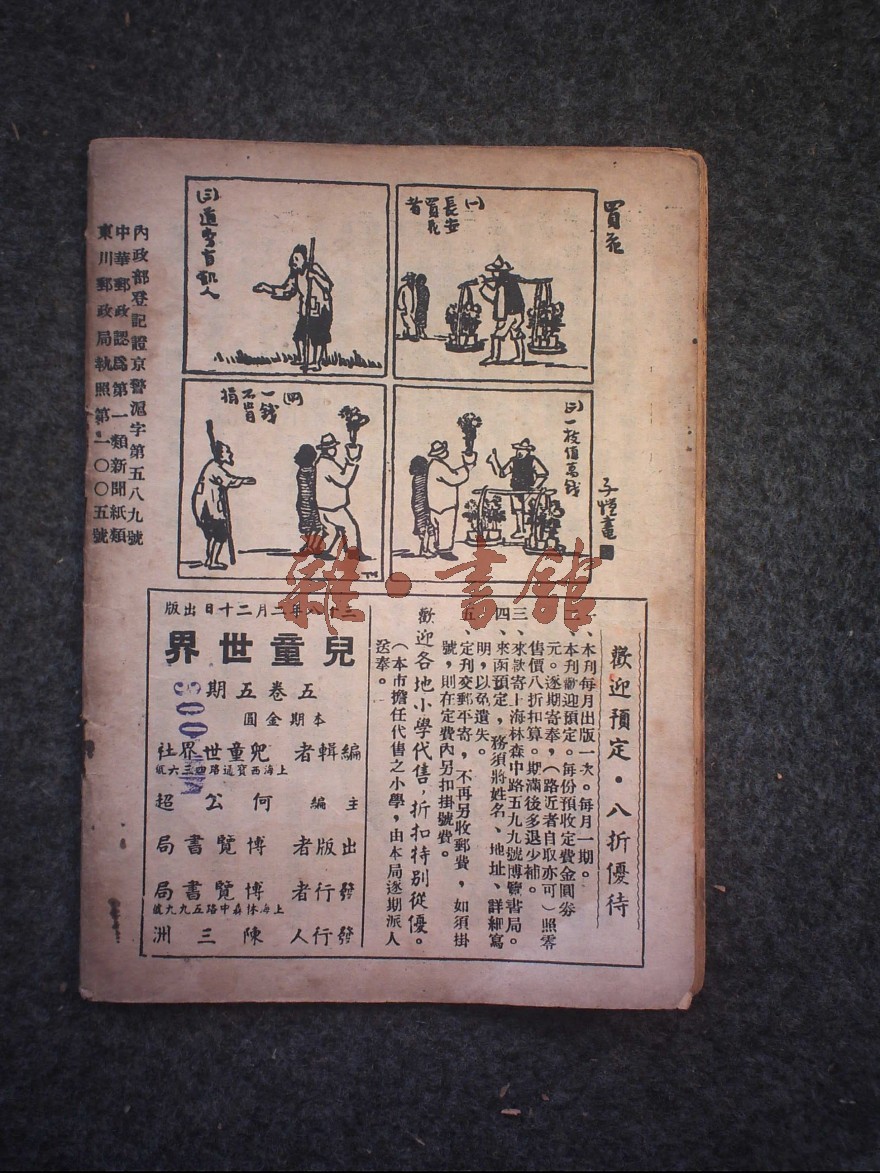 買花
子愷畫
(一)長安
買花
者
(二)一枝值萬錢
(三)道旁有飢人
(四)一錢
不肯
捐
內政部登記證京警滬字第五八九號
中華郵政認爲第一類新聞紙類
東川郵政局執照第一〇〇五號
雜·書館
歡迎預定·八折優待
一、本刊每月出版一次。每月一期。
二、本刊歡迎預定。每份預收定費金圓券
元。逐期寄奉,(路近者自取亦可)照零
售價八折扣算。期滿後多退少補。
三、來款寄上海林森中路五九九號博覽書局。
四、來函預定,務須將姓名、地址、詳細寫
明,以免遺失。
五、定刊交郵不寄,不再另收郵費,如須掛
號,則在定費內另扣掛號費。
歡迎各地小學代售,折扣特別從優。
(本市擔任代售之小學,由本局逐期派人
送奉。
三十八年二月二十日出版
兒童世界
五卷五期
本期金圓
編輯者 兒童世界社
上海西寶通路四三六號
主編 何公超
出版者 博覽書局
發行者 博覽書局
上海林森中路五九九號
發行人 陳三洲